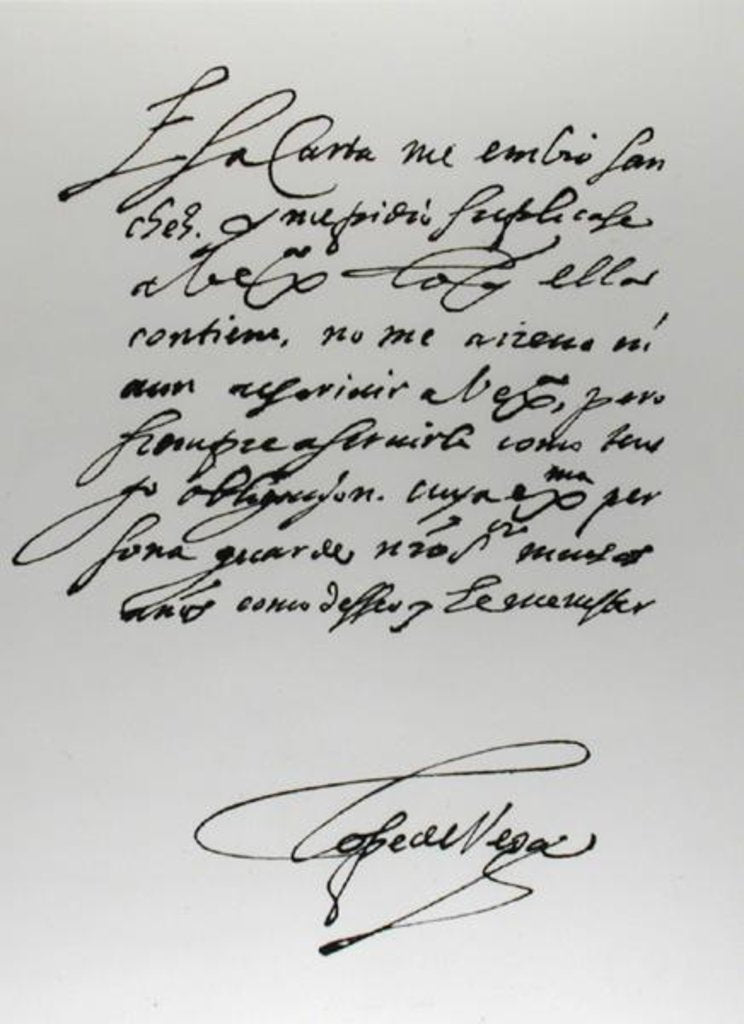 Esta Carta me embio San
chez. y me pidio suplicase
a V ex.ª lo q ella
contiene, no me atreuo ni
aun a escriuir a V ex.ª, pero
siempre a seruirle como ten
go obligaçion. cuya ex.ma per
sona guarde nro S.or muchos
años como desseo y he menester
Lope de Vega